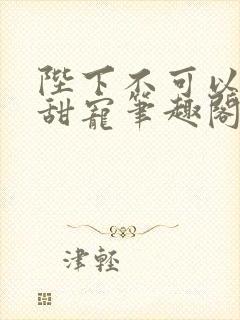 陛下不可以
甜寵筆趣閣
津輕